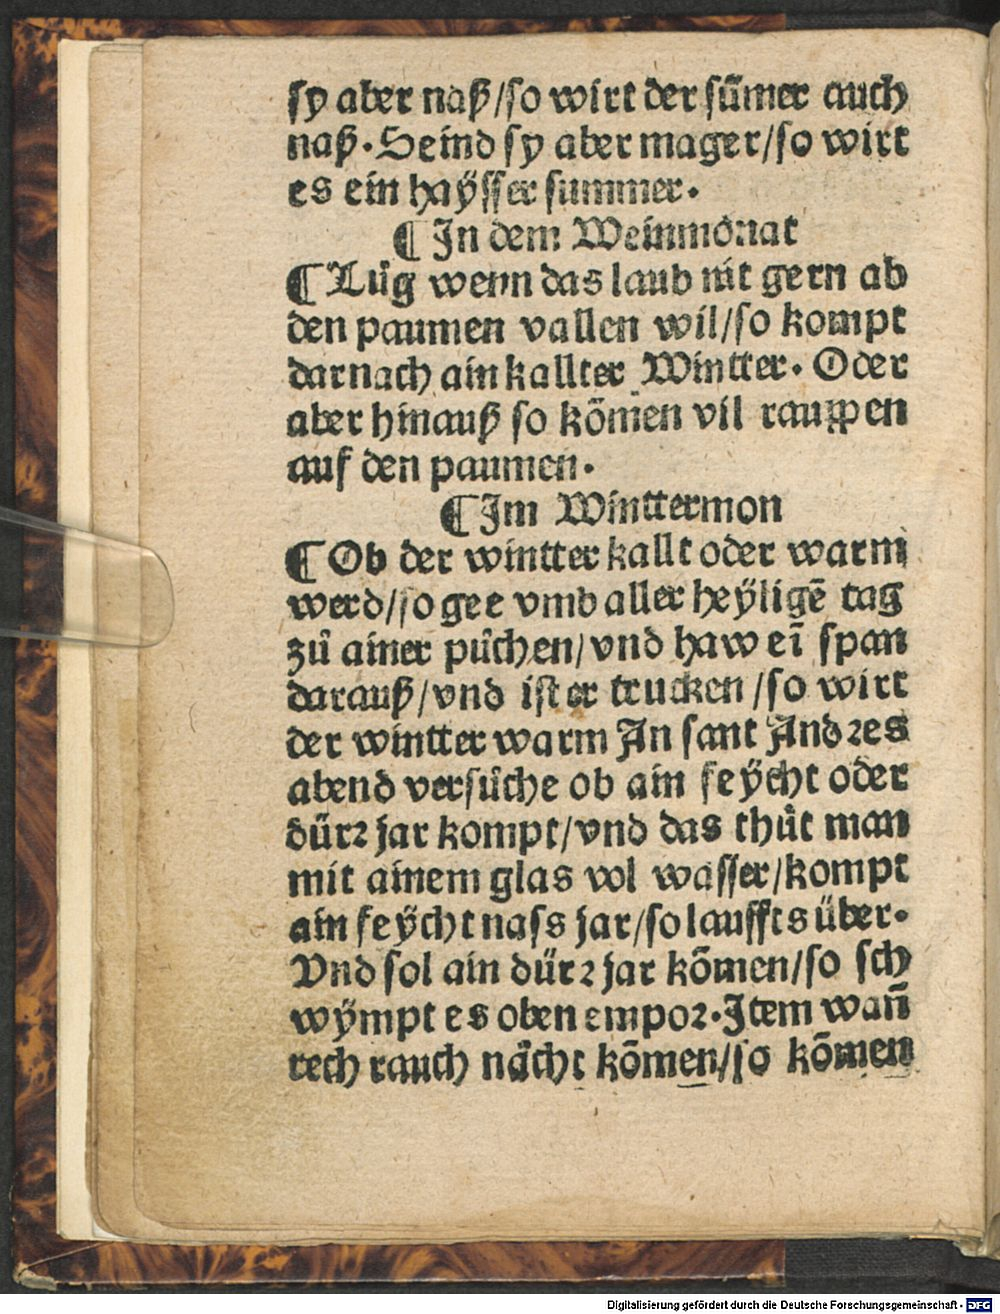 sy aber naß/so wirt der sum̃er auch
naß. Seind sy aber mager/so wirt
es ein haÿsser summer.
¶ In dem Weinmonat
¶ Lůg wenn das laub nit gern ab
den paumen vallen wil/so kompt
darnach ain kallter Wintter. Oder
aber hinauß so kōmen vil rauppen
auf den paumen.
¶ Im Winttermon
¶ Ob der wintter kallt oder warm
werd/so gee vmb aller heÿligē tag
zů ainer půchen/vnd haw eī span
darauß/vnd ist er trucken/so wirt
der wintter warm An sant Andꝛes
abend versůche ob ain feÿcht oder
dürꝛ jar kompt/vnd das thůt man
mit ainem glas vol wasser/kompt
ain feÿcht nass jar/so laufftsüber.
Vnd sol ain dürꝛ jar kōmen/so sch
wÿmpt es oben empoꝛ. Item wañ
rech rauch nächt kōmen/so kōmen
Digitalisierung gefördert durch die Deutsche Forschungsgemeinschaft - DFG